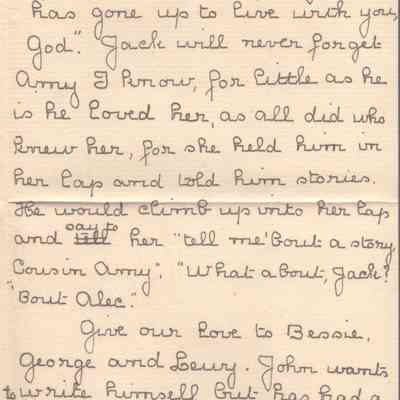 has gone up to live with you,
God". Jack will never forget
Amy I know, for little as he
is he loved her, as all did who
knew her, for she held him in
her lap and told him stories.
He would climb up into her lap
and say to her "tell me 'bout a story,
Cousin Amy". "What about, Jack?
"'Bout Alec."
Give our love to Bessie,
George and Leury. John wants
to write himself but has had a